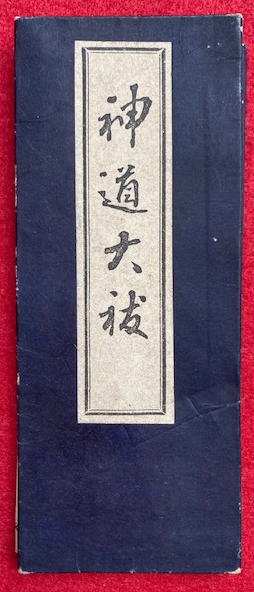 神道大祓